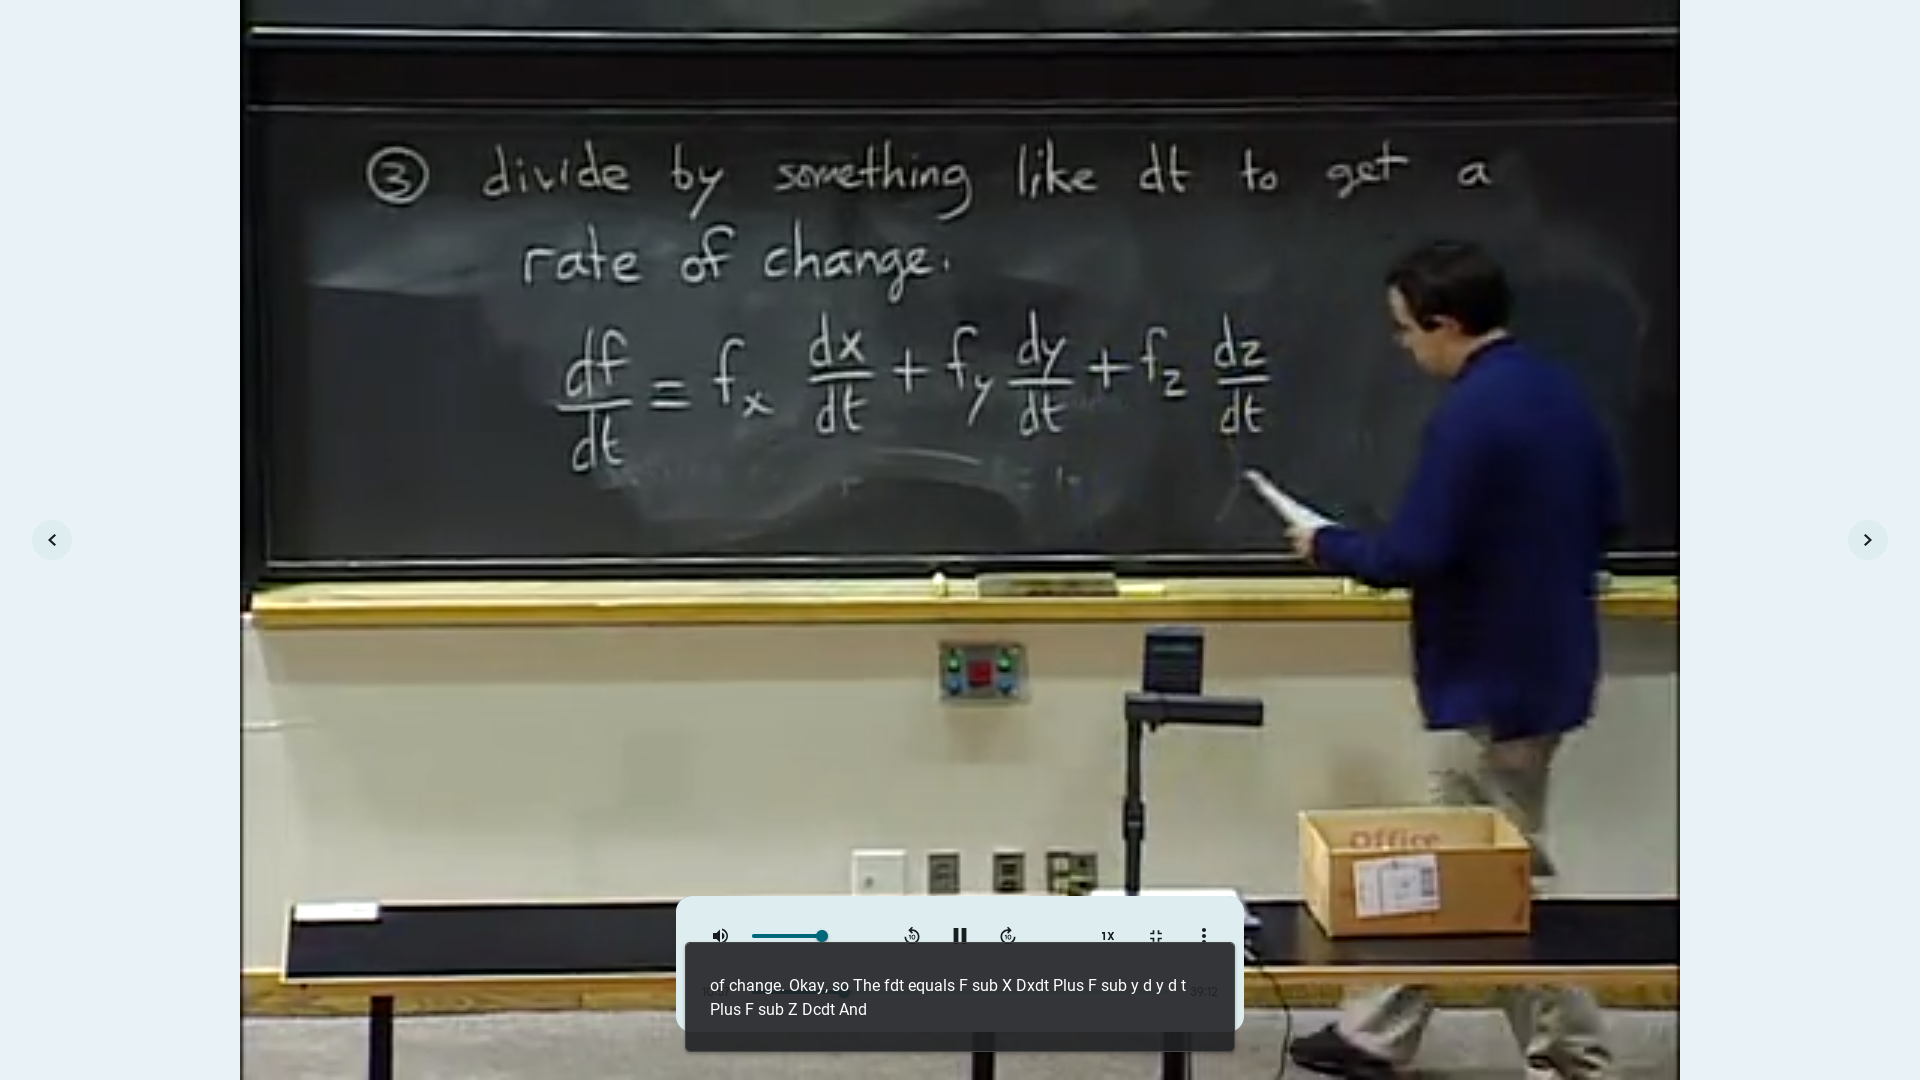 ③ divide by something like dt to get a
rate of change.
df/dt = f_x dx/dt + f_y dy/dt + f_z dz/dt
Office
1X
of change. Okay, so The fdt equals F sub X Dxdt Plus F sub y d y d t
39:12
Plus F sub Z Dcdt And